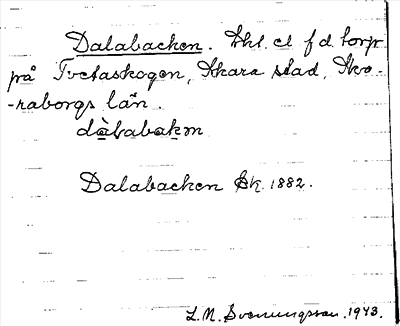 Dalabacken. Skl. o. f.d. torp
på Tvetaskogen, Skara stad, Ska-
-raborgs län.
dàlabakɘn
Dalabacken Ek. 1882.
L.N. Svenungsson. 1943.